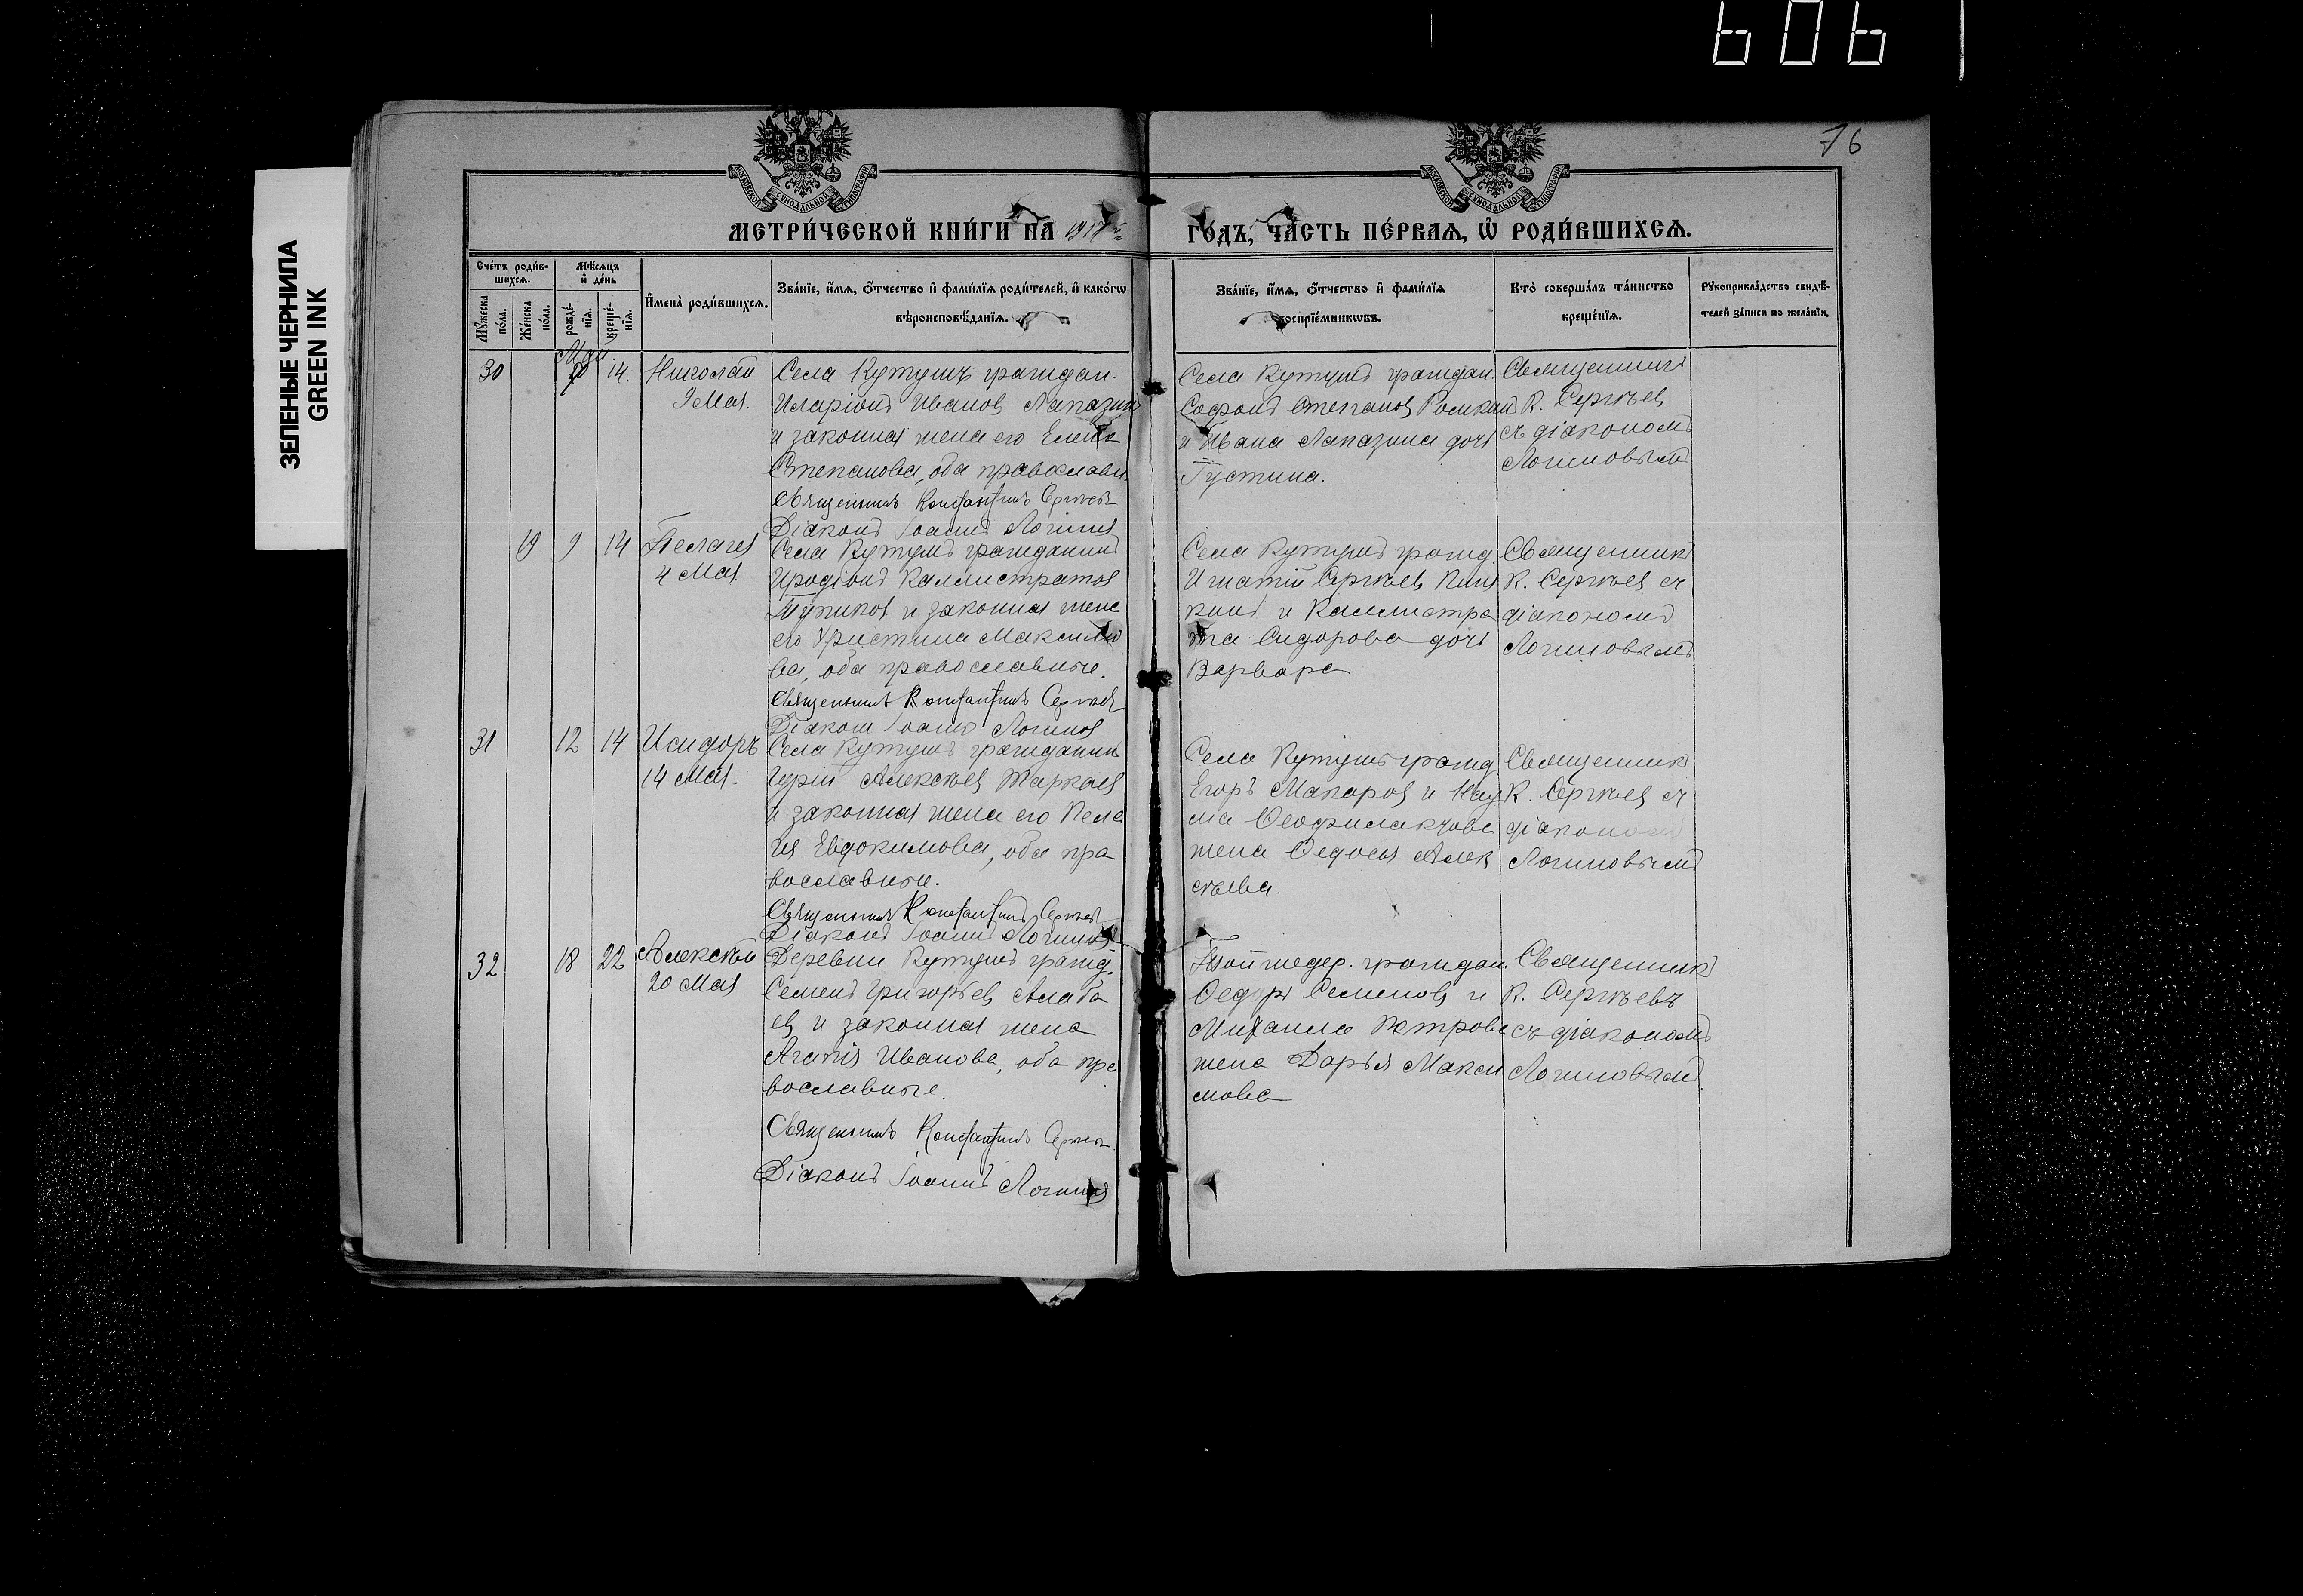 606
76
ЗЕЛЕНЫЕ ЧЕРНИЛА
GREEN INK
МОСКОВСКОЙ СѴНОДАЛЬНОЙ ТИПОГРАФІИ
МОСКОВСКОЙ СѴНОДАЛЬНОЙ ТИПОГРАФІИ
МЕТРИ́ЧЕСКОЙ КНИ́ГИ НА 1918
ГО́ДЪ, ЧА́СТЬ ПЕ́РВАѦ, Ѡ҆ РОДИ́ВШИХСѦ.
Сче́тъ роди́в-
шихсѧ.
Мѣ́сѧцъ
и҆ де́нь
Мꙋ́жеска
по́ла.
Же́нска
по́ла.
рожде́-
нїѧ.
креще́-
нїѧ.
И҆мена̀ роди́вшихсѧ.
Зва́нїе, и҆́мѧ, ѻ҆́тчество и҆ фами́лїѧ роди́телей, и҆ како́гѡ
вѣроисповѣ́данїѧ.
Зва́нїе, и҆́мѧ, ѻ҆́тчество и҆ фами́лїѧ
воспрїе́мникѡвъ.
Кто̀ соверша́лъ та́инство
креще́нїѧ.
Рꙋкоприкла́дство свидѣ́-
телей за́писи по жела́нїю.
Май
30 14. Николай
9 Мая.
Села Кутушъ граждан.
Иларіонъ Ивановъ Лапазинъ
и законная жена его Елена
Степанова, оба православн.
Священникъ Константинъ Сергѣевъ
Діаконъ Іоаннъ Логиновъ
Села Кутушъ граждан.
Софонъ Степановъ
и Ивана Лапазина дочь
Густина.
Священникъ
К. Сергѣевъ
съ діакономъ
Логиновымъ
19 9 14 Пелагея
4 Мая
Села Кутушъ гражданинъ
Иродіонъ Каллистратовъ
Тупиковъ и законная жена
его Христина Максимо
ва, оба православные.
Священникъ Константинъ Сергѣевъ
Діаконъ Іоаннъ Логиновъ
Села Кутушъ гражд.
Игнатій Сергѣевъ
кинъ и Каллистра
та Сидорова дочь
Варвара
Священникъ
К. Сергѣевъ съ
діакономъ
Логиновымъ
31 12 14 Исидоръ
14 Мая.
Села Кутушъ гражданинъ
Гурій Алексѣевъ Жаркаевъ
и законная жена его Пела
гея Евдокимова, оба пра
вославные.
Священникъ Константинъ Сергѣевъ
Діаконъ Іоаннъ Логиновъ
Села Кутушъ гражд.
Егоръ Макаровъ и Нау
ма Ѳеофилактова
жена Ѳедосья Алек
сѣева.
Священникъ
К. Сергѣевъ съ
діакономъ
Логиновымъ
32 18 22 Алексѣй
20 Мая
Деревни Кутушъ гражд.
Семенъ Григорьевъ Алаба
евъ и законная жена
Агапія Иванова, оба пра
вославные.
Священникъ Константинъ Сергѣевъ
Діаконъ Іоаннъ Логиновъ
Той же дер. граждан.
Ѳедоръ Семеновъ и
Михаила Петрова
жена Дарья Макси
мова
Священникъ
К. Сергѣевъ
съ діакономъ
Логиновымъ